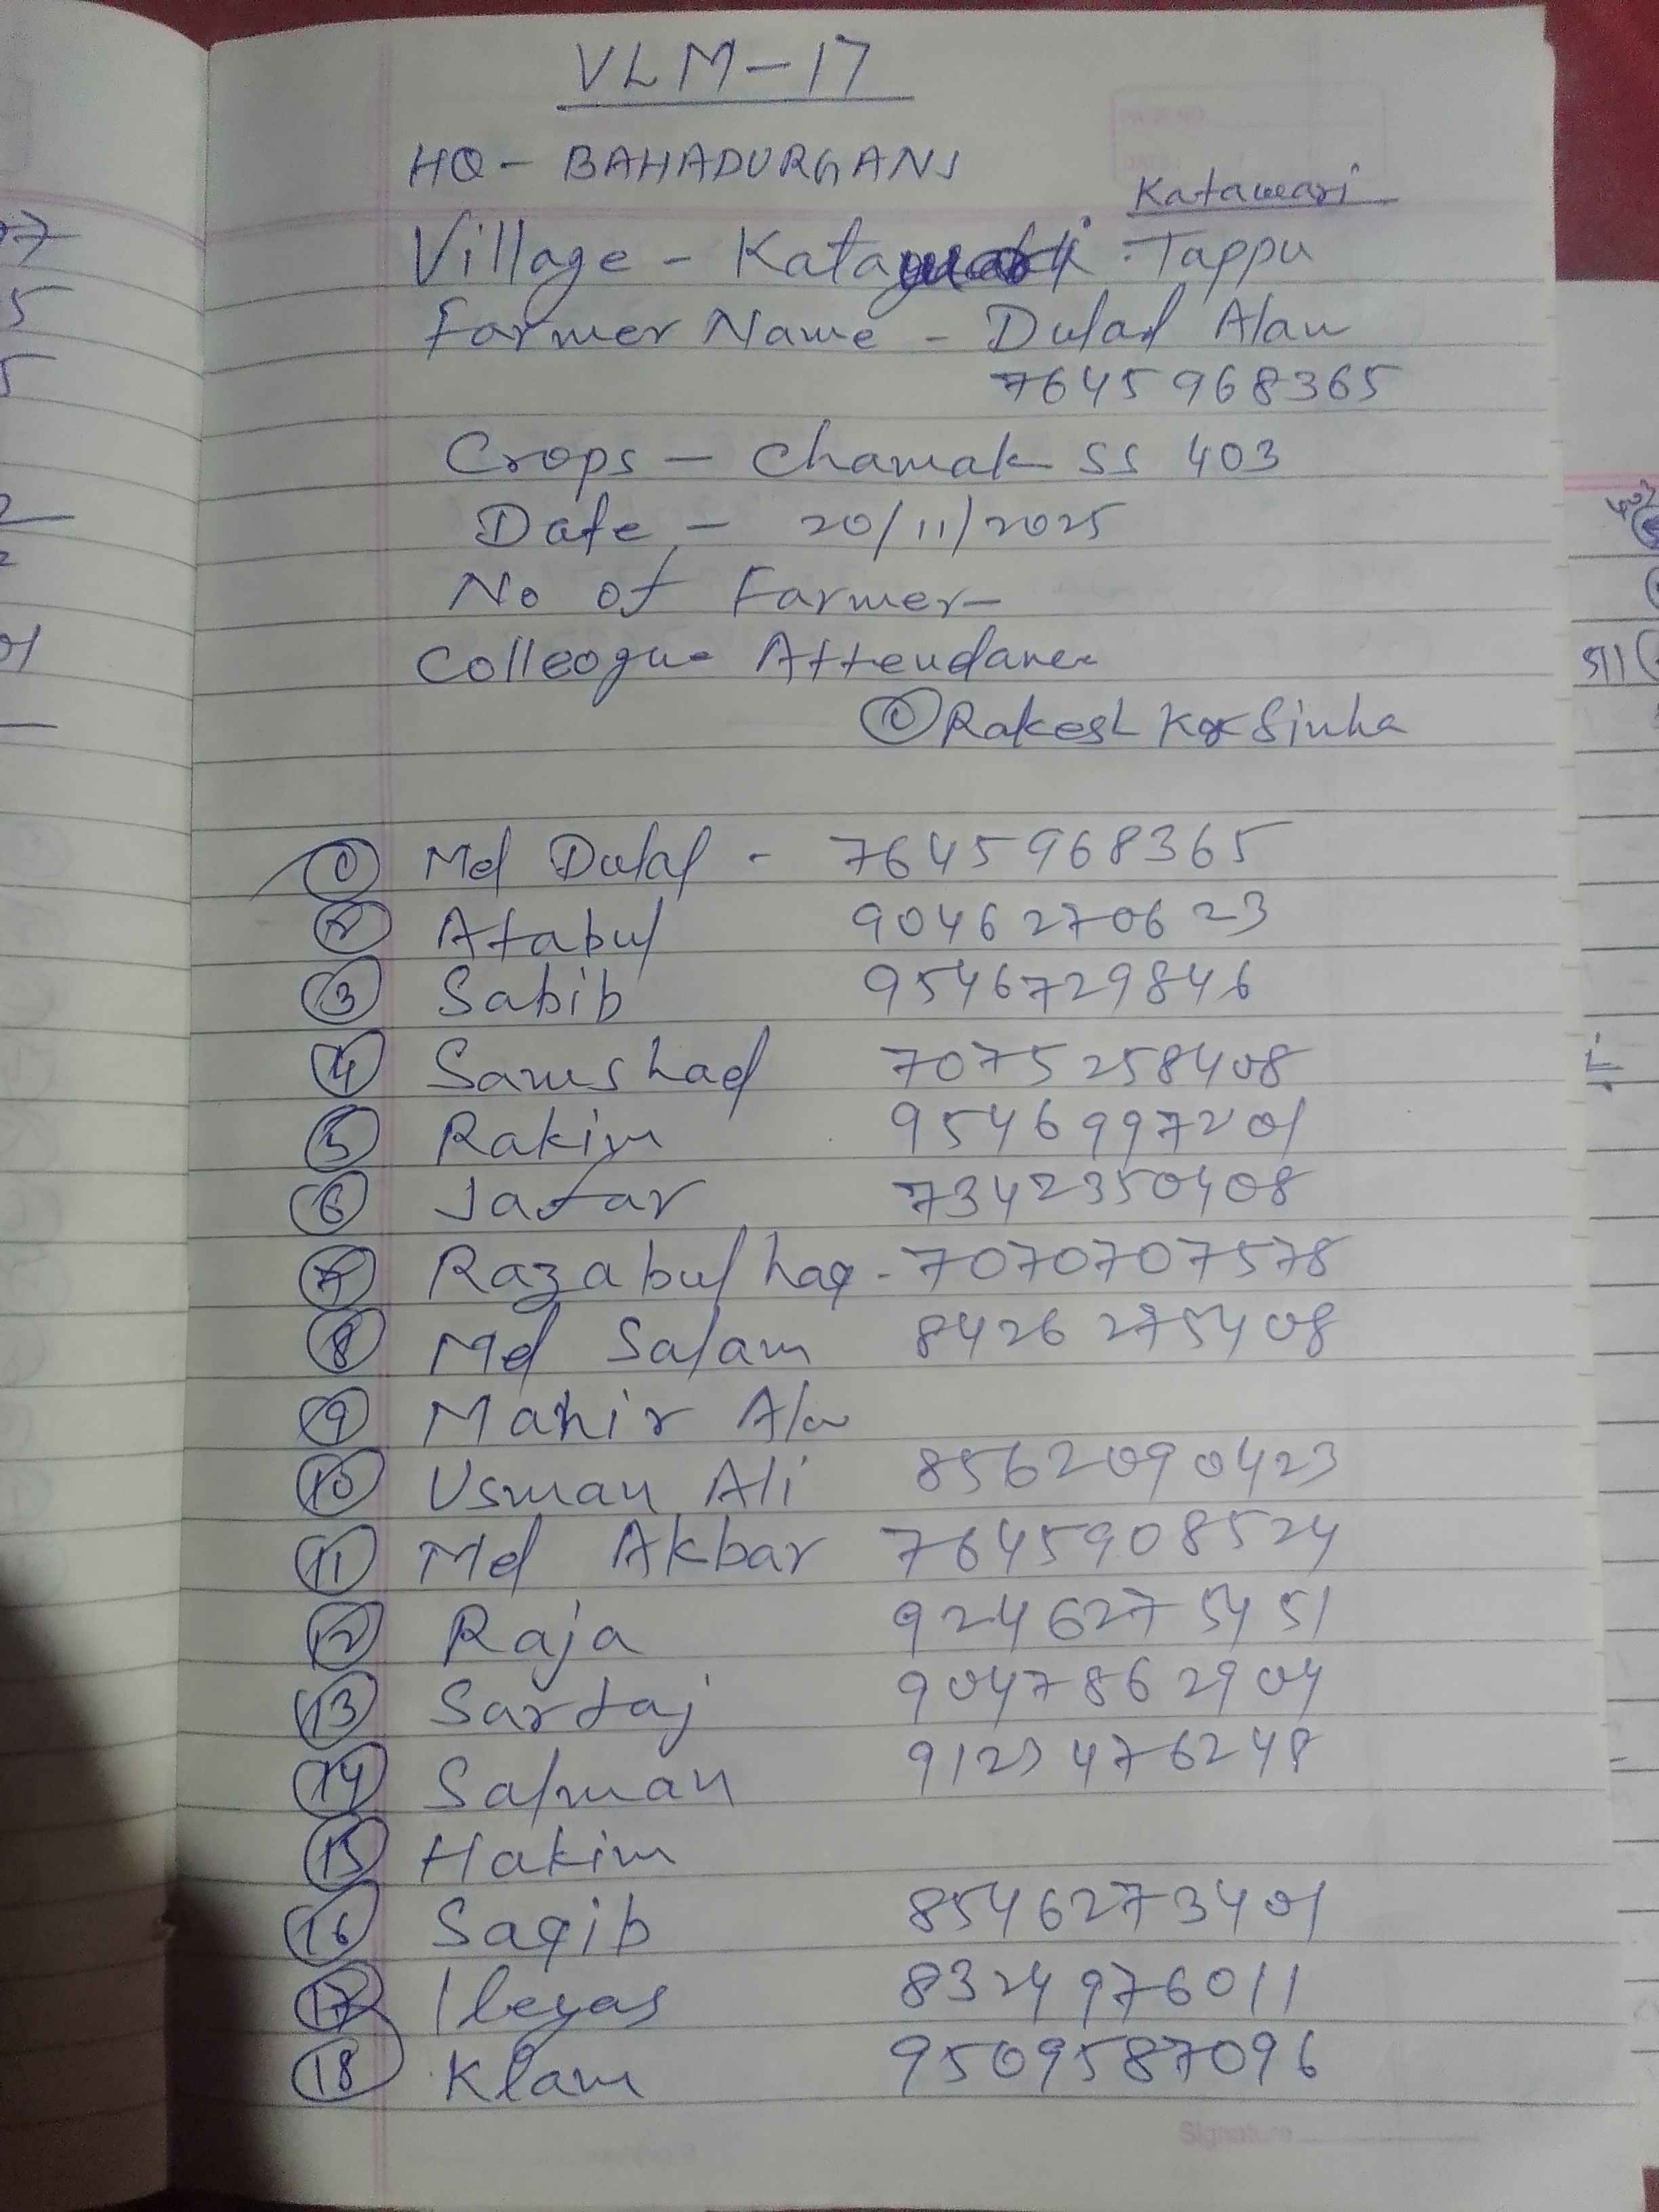 VLM-17
HQ - BAHADURGANJ
Katawari
Village - Tappu
Farmer Name - Dulal Alam
7645968365
Crops - Chamak SS 403
Date - 20/11/2025
No of Farmer-
Colleogue Attendance
① Rakesh Kr Sinha
① Md Dulal - 7645968365
② Atabul 9046270623
③ Sabib 9546729846
④ Samshad 7075258408
⑤ Rakim 9546997201
⑥ Jafar 7342350408
⑦ Razabul haq - 7070707578
⑧ Md Salam 8426275408
⑨ Mahir Ala
⑩ Usman Ali 8562090423
⑪ Md Akbar 7645908524
⑫ Raja 9246275451
⑬ Sartaj 9047862904
⑭ Salman 9123476248
⑮ Hakim
⑯ Saqib 8546273401
⑰ Ileyas 8324976011
⑱ Klam 9509587096
Signature